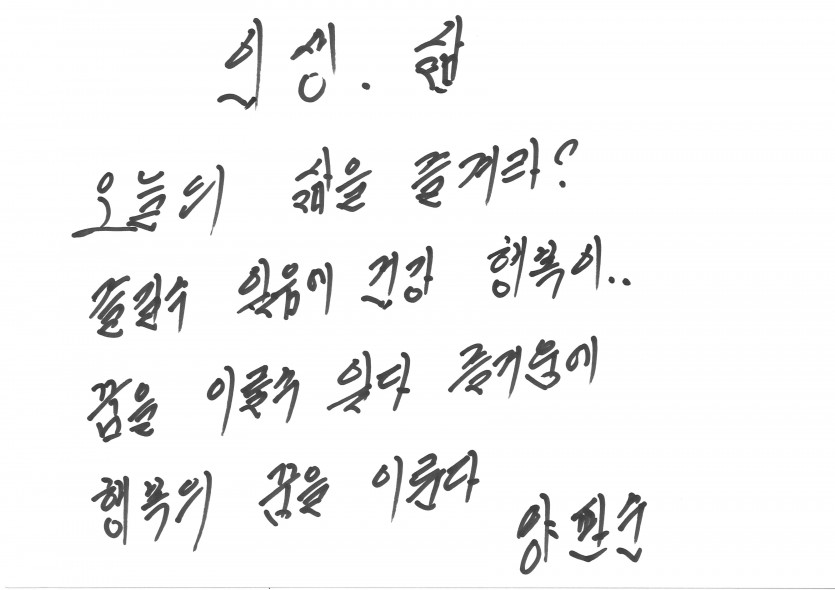 인생. 삶
오늘의 삶을 즐겨라?
즐길수 있음에 건강 행복이..
꿈을 이룰수 있다 즐거움에
행복의 꿈을 이룬다
양판순